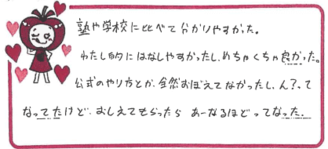 塾や学校に比べて分かりやすかった。
わたし的にはなしやすかったし、めちゃくちゃ良かった。
公式のやり方とか、全然おぼえてなかったし、ん?って
なってたけど、おしえてもらったら あーなるほどってなった。